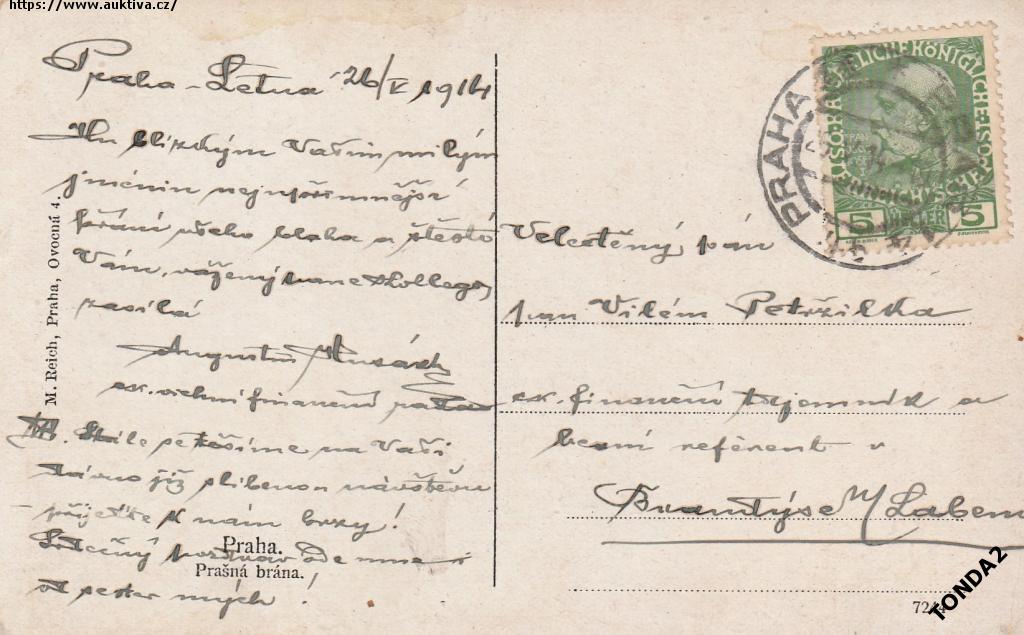 https://www.auktiva.cz/
Praha-Letná 26/V 1914
Ku blízkým Vašim milým
jmeninám nejupřímnější
přání všeho blaha a štěstí
Vám, vážený pane kollego,
zasílá
Augustin
c.k. vrchní finanční rada
Stále se těšíme na Vaši
dávno již slíbenou návštěvu
– přijeďte k nám brzy!
Srdečný pozdrav ode mne i
od sester mých!
M. Reich, Praha, Ovocná 4.
Praha.
Prašná brána.
Velectěný pán
pan Vilém Petržilka
c.k. finanční tajemník a
berní referent v
Brandýse n/Labem
PRAHA
5 HELLER 5
TONDA2